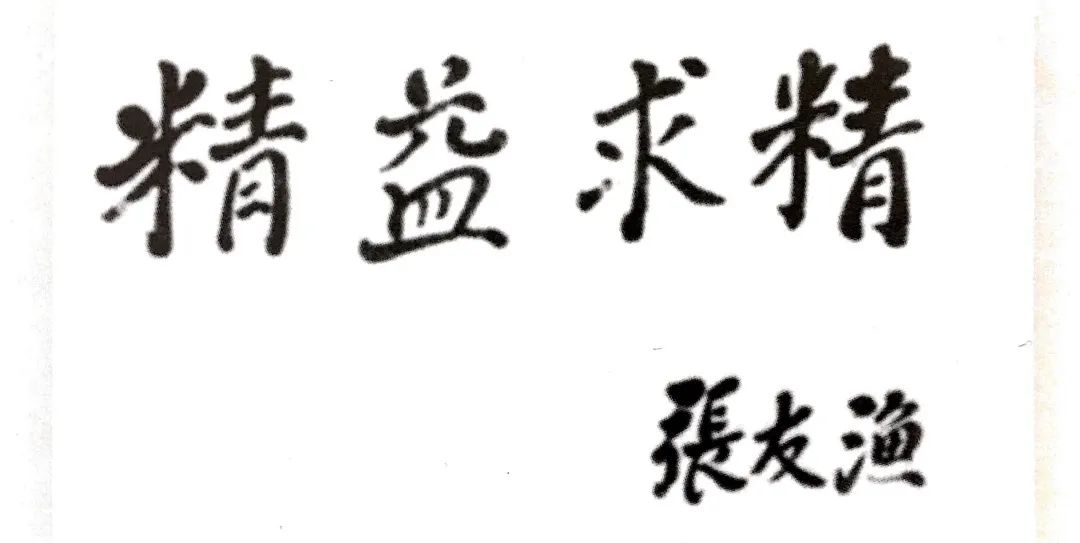 精益求精
張友渔